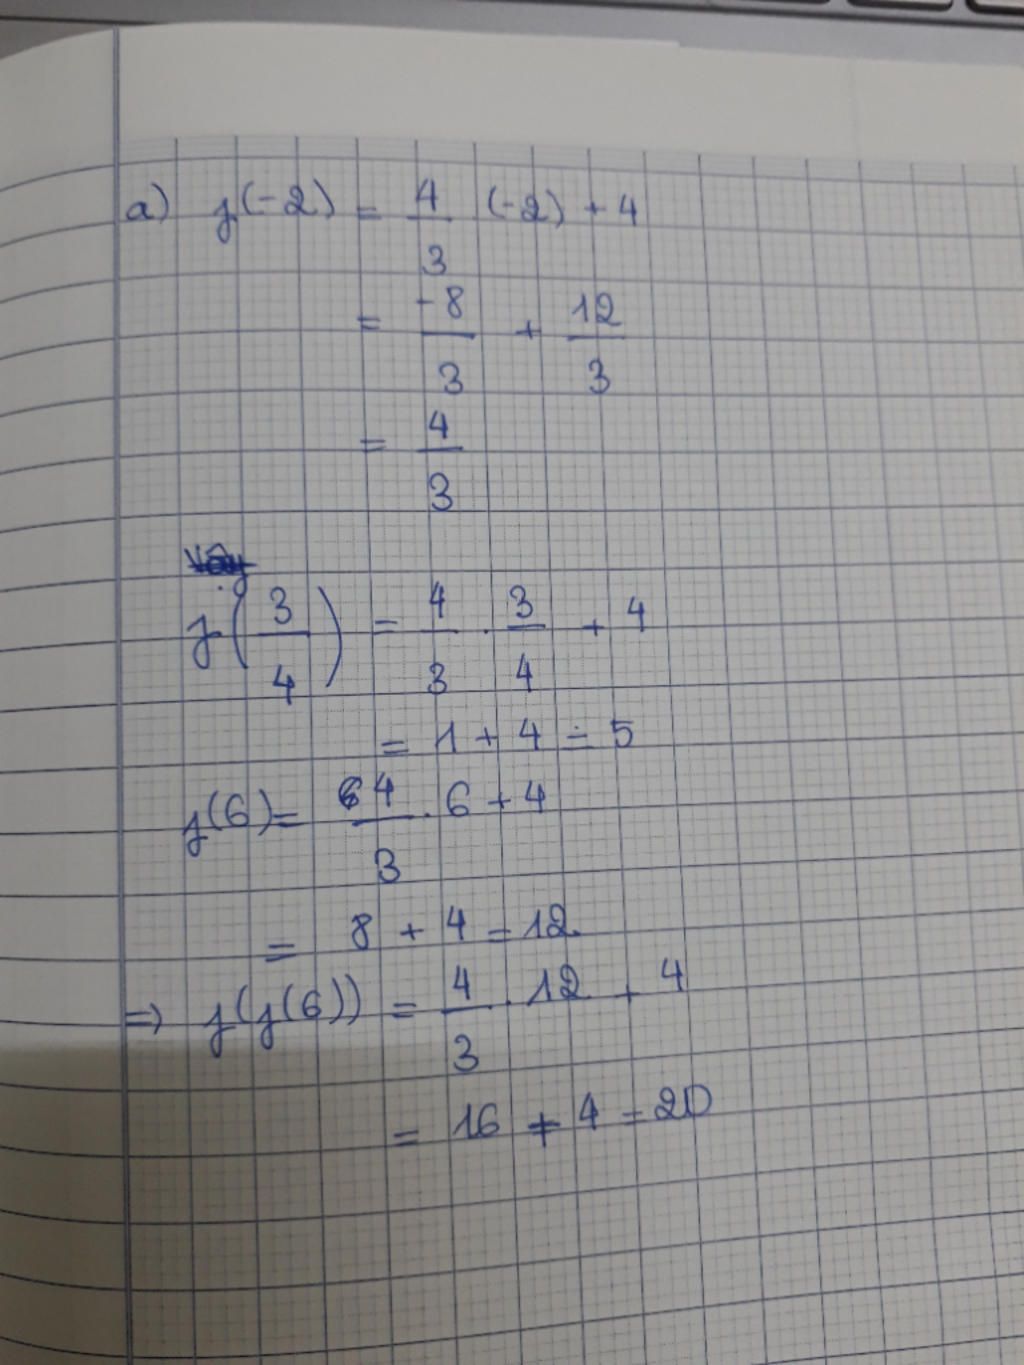 a) f(-2) = 4/3 (-2) + 4
= -8/3 + 12/3
= 4/3
f(3/4) = 4/3 . 3/4 + 4
= 1 + 4 = 5
f(6) = 4/3 . 6 + 4
= 8 + 4 = 12
=> f(f(6)) = 4/3 . 12 + 4
= 16 + 4 = 20